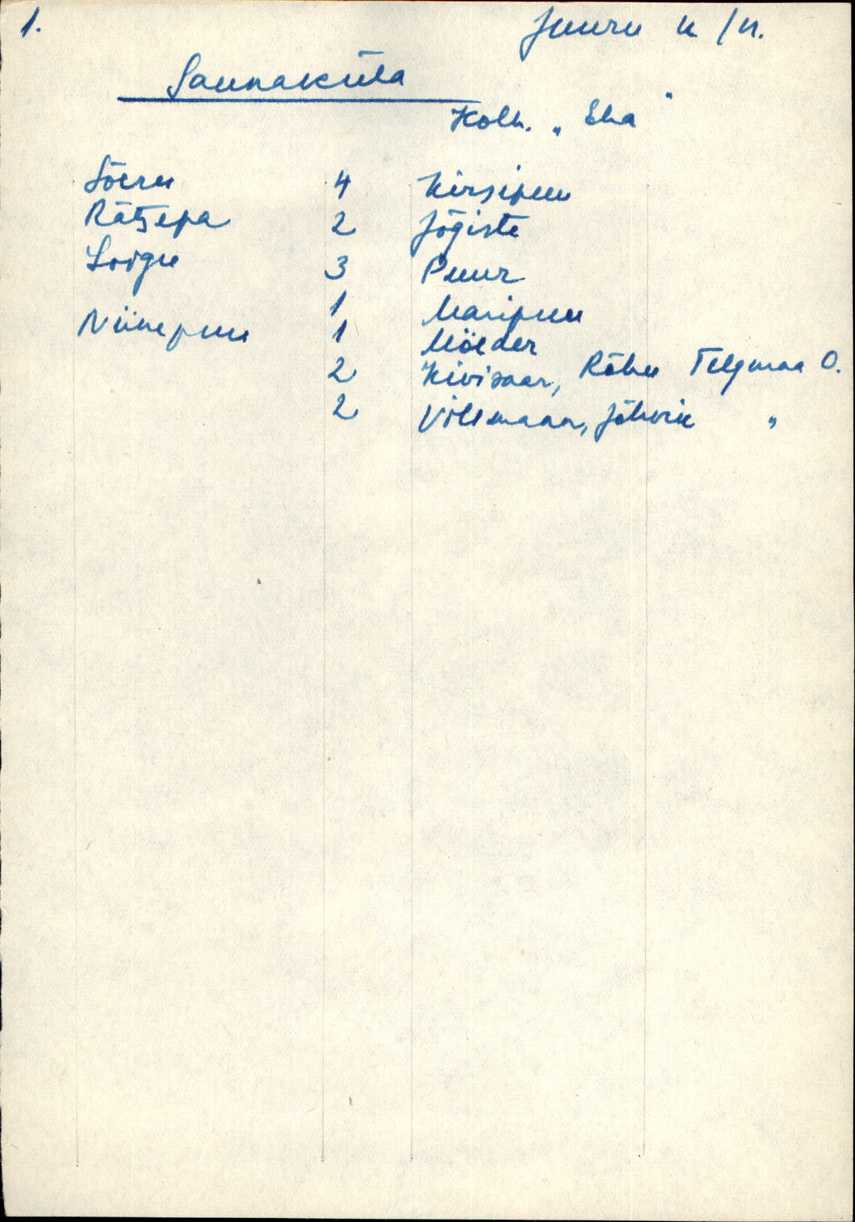 1. Juuru k/n.
Saunaküla
Kolh. „Eha"
Sõeru 4 Kirsipuu
Rätsepa 2 Jõgiste
Loigu 3 Puur
1 Maripuu
Niinepuu 1 Mölder
2 Kivisaar, Rõhu Telgmaa O.
2 Villmann, Jõhvik "